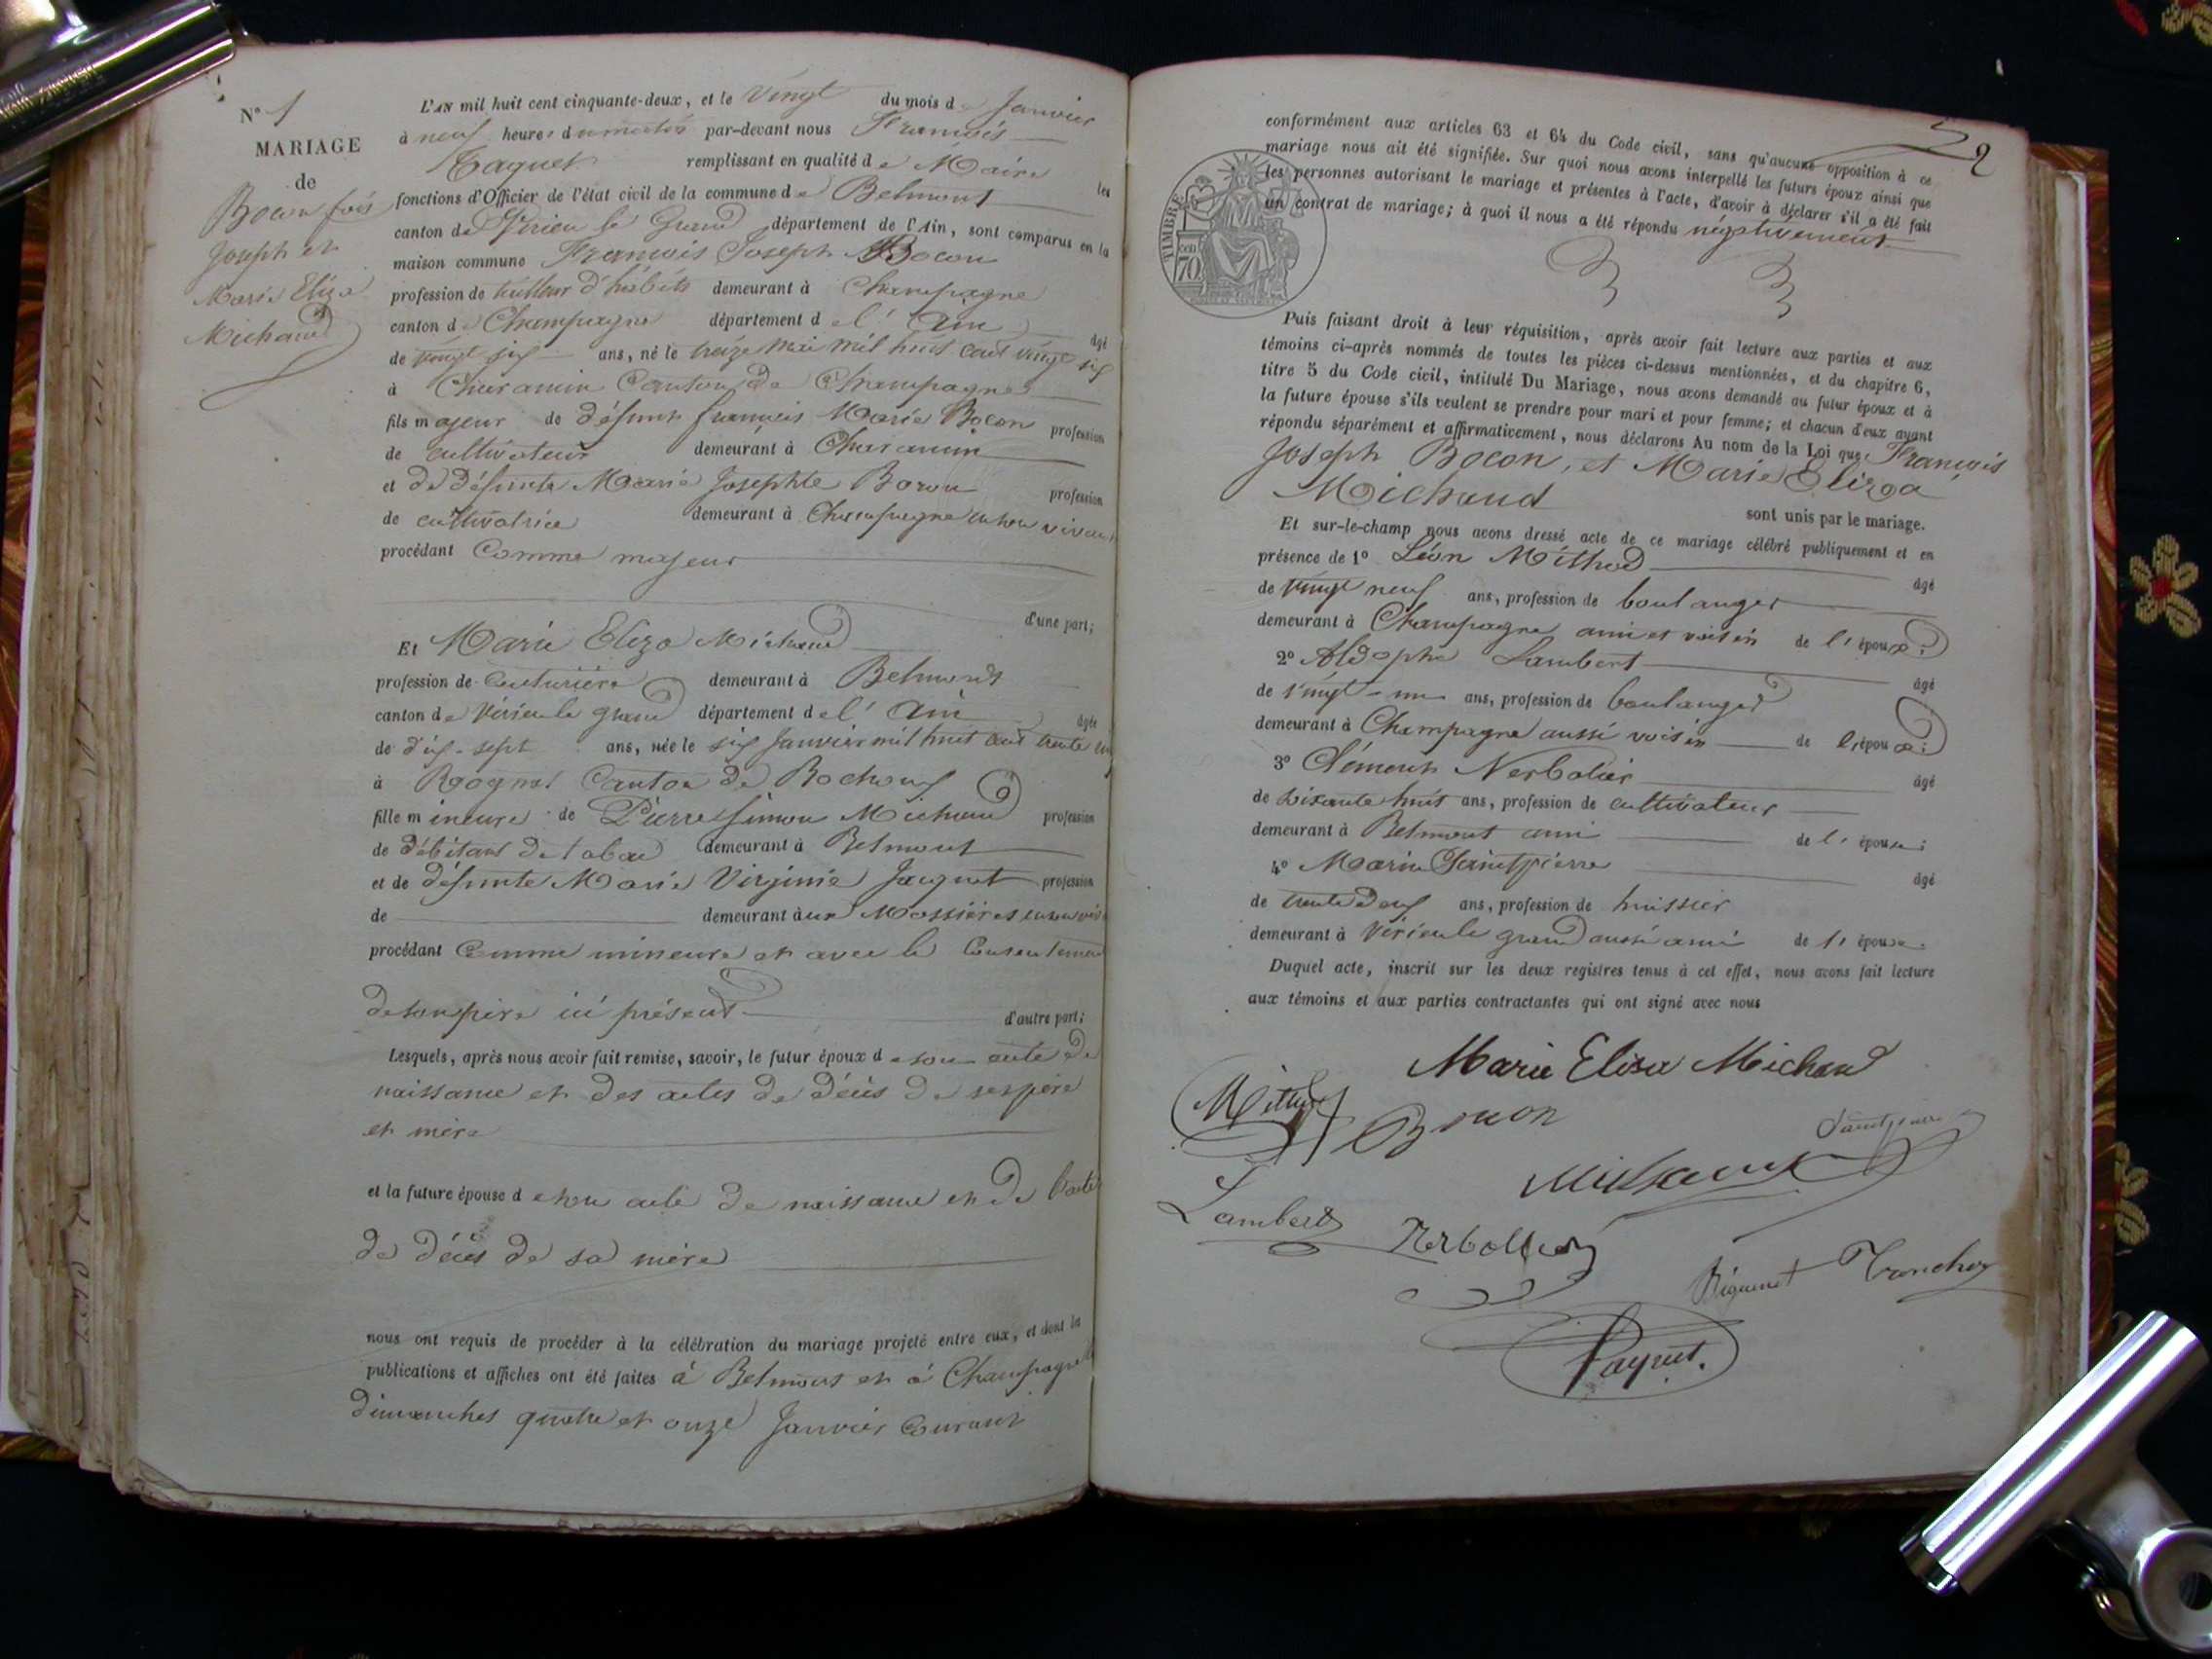 N° 1
MARIAGE
de
Bocon fois
Joseph et
Marie Eliza
Michaud
L'AN mil huit cent cinquante-deux, et le vingt du mois de Janvier
à neuf heures du matin par-devant nous François
remplissant en qualité de Maire les
fonctions d'Officier de l'état civil de la commune de Belmont
canton de Virieu le Grand département de l'Ain, sont comparus en la
maison commune François Joseph Bocon
profession de tailleur d'habits demeurant à Champagne
canton de Champagne département de l'Ain âgé
de vingt six ans, né le treize mai mil huit cent vingt six
à Charancin Canton de Champagne
fils majeur de défunt françois Marie Bocon profession
de cultivateur demeurant à Charancin
et de défunte Marie Josephte profession
de cultivatrice demeurant à Champagne vivant
procédant comme majeur
d'une part;
Et Marie Eliza Michaud
profession de Couturière demeurant à Belmont
canton de Virieu le grand département de l'Ain âgée
de dix-sept ans, née le six Janvier mil huit cent trente
à Canton de
fille mineure de Pierre Simon Michaud profession
de débitant de tabac demeurant à Belmont
et de défunte Marie Virginie Jacquet profession
de demeurant à
procédant comme mineure et avec le consentement
de son père ici présent d'autre part;
Lesquels, après nous avoir fait remise, savoir, le futur époux de son acte de
naissance et des actes de décès de ses père
et mère
et la future épouse de son acte de naissance et de l'acte
de décès de sa mère
nous ont requis de procéder à la célébration du mariage projeté entre eux, et dont les
publications et affiches ont été faites à Belmont et à Champagne
dimanches quatre et onze Janvier Courant
2
conformément aux articles 63 et 64 du Code civil, sans qu'aucune opposition à ce
mariage nous ait été signifiée. Sur quoi nous avons interpellé les futurs époux ainsi que
les personnes autorisant le mariage et présentes à l'acte, d'avoir à déclarer s'il a été fait
un contrat de mariage; à quoi il nous a été répondu négativement
TIMBRE
70
Puis faisant droit à leur réquisition, après avoir fait lecture aux parties et aux
témoins ci-après nommés de toutes les pièces ci-dessus mentionnées, et du chapitre 6,
titre 5 du Code civil, intitulé Du Mariage, nous avons demandé au futur époux et à
la future épouse s'ils veulent se prendre pour mari et pour femme; et chacun d'eux ayant
répondu séparément et affirmativement, nous déclarons Au nom de la Loi que François
Joseph Bocon, et Marie Eliza
Michaud
sont unis par le mariage.
Et sur-le-champ nous avons dressé acte de ce mariage célébré publiquement et en
présence de 1° Léon Mithod âgé
de vingt neuf ans, profession de boulanger
demeurant à Champagne ami et voisin de l' époux;
2° Aldophe Lambert âgé
de vingt-un ans, profession de boulanger
demeurant à Champagne aussi voisin de l' époux;
3° Clément Nerbolier âgé
de soixante huit ans, profession de cultivateur
demeurant à Belmont ami de l' épouse;
4° Marin Saintpierre âgé
de trente deux ans, profession de huissier
demeurant à Virieu le grand aussi ami de l' épouse.
Duquel acte, inscrit sur les deux registres tenus à cet effet, nous avons fait lecture
aux témoins et aux parties contractantes qui ont signé avec nous
Marie Elisa Michaud
Bocon
Saintpierre
Michaud
Lambert
Nerbollier